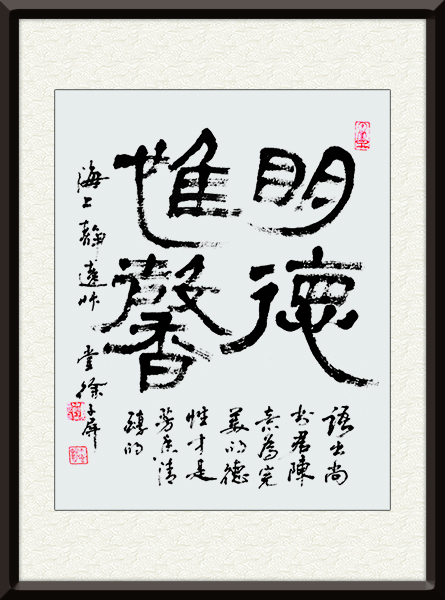 明德
惟馨
語出尚
书君陳
意為完
美的德
性才是
芳香清
醇的
海上靜遠堂徐子屏